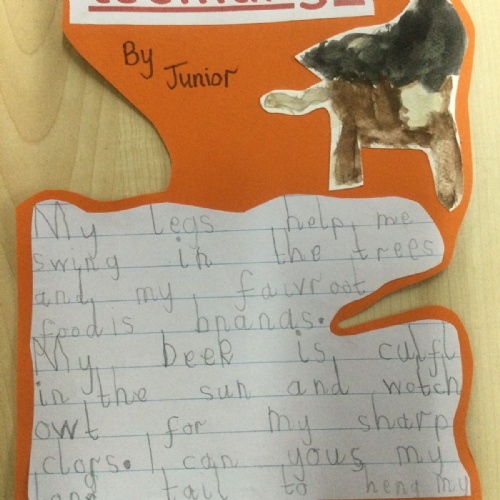 By
Junior
My legs help me
swing in the trees
and my faivroot
food is bnanas.
My beek is culfl
in the sun and wotch
owt for my sharp
clors. I can yous my
long tail to hend my